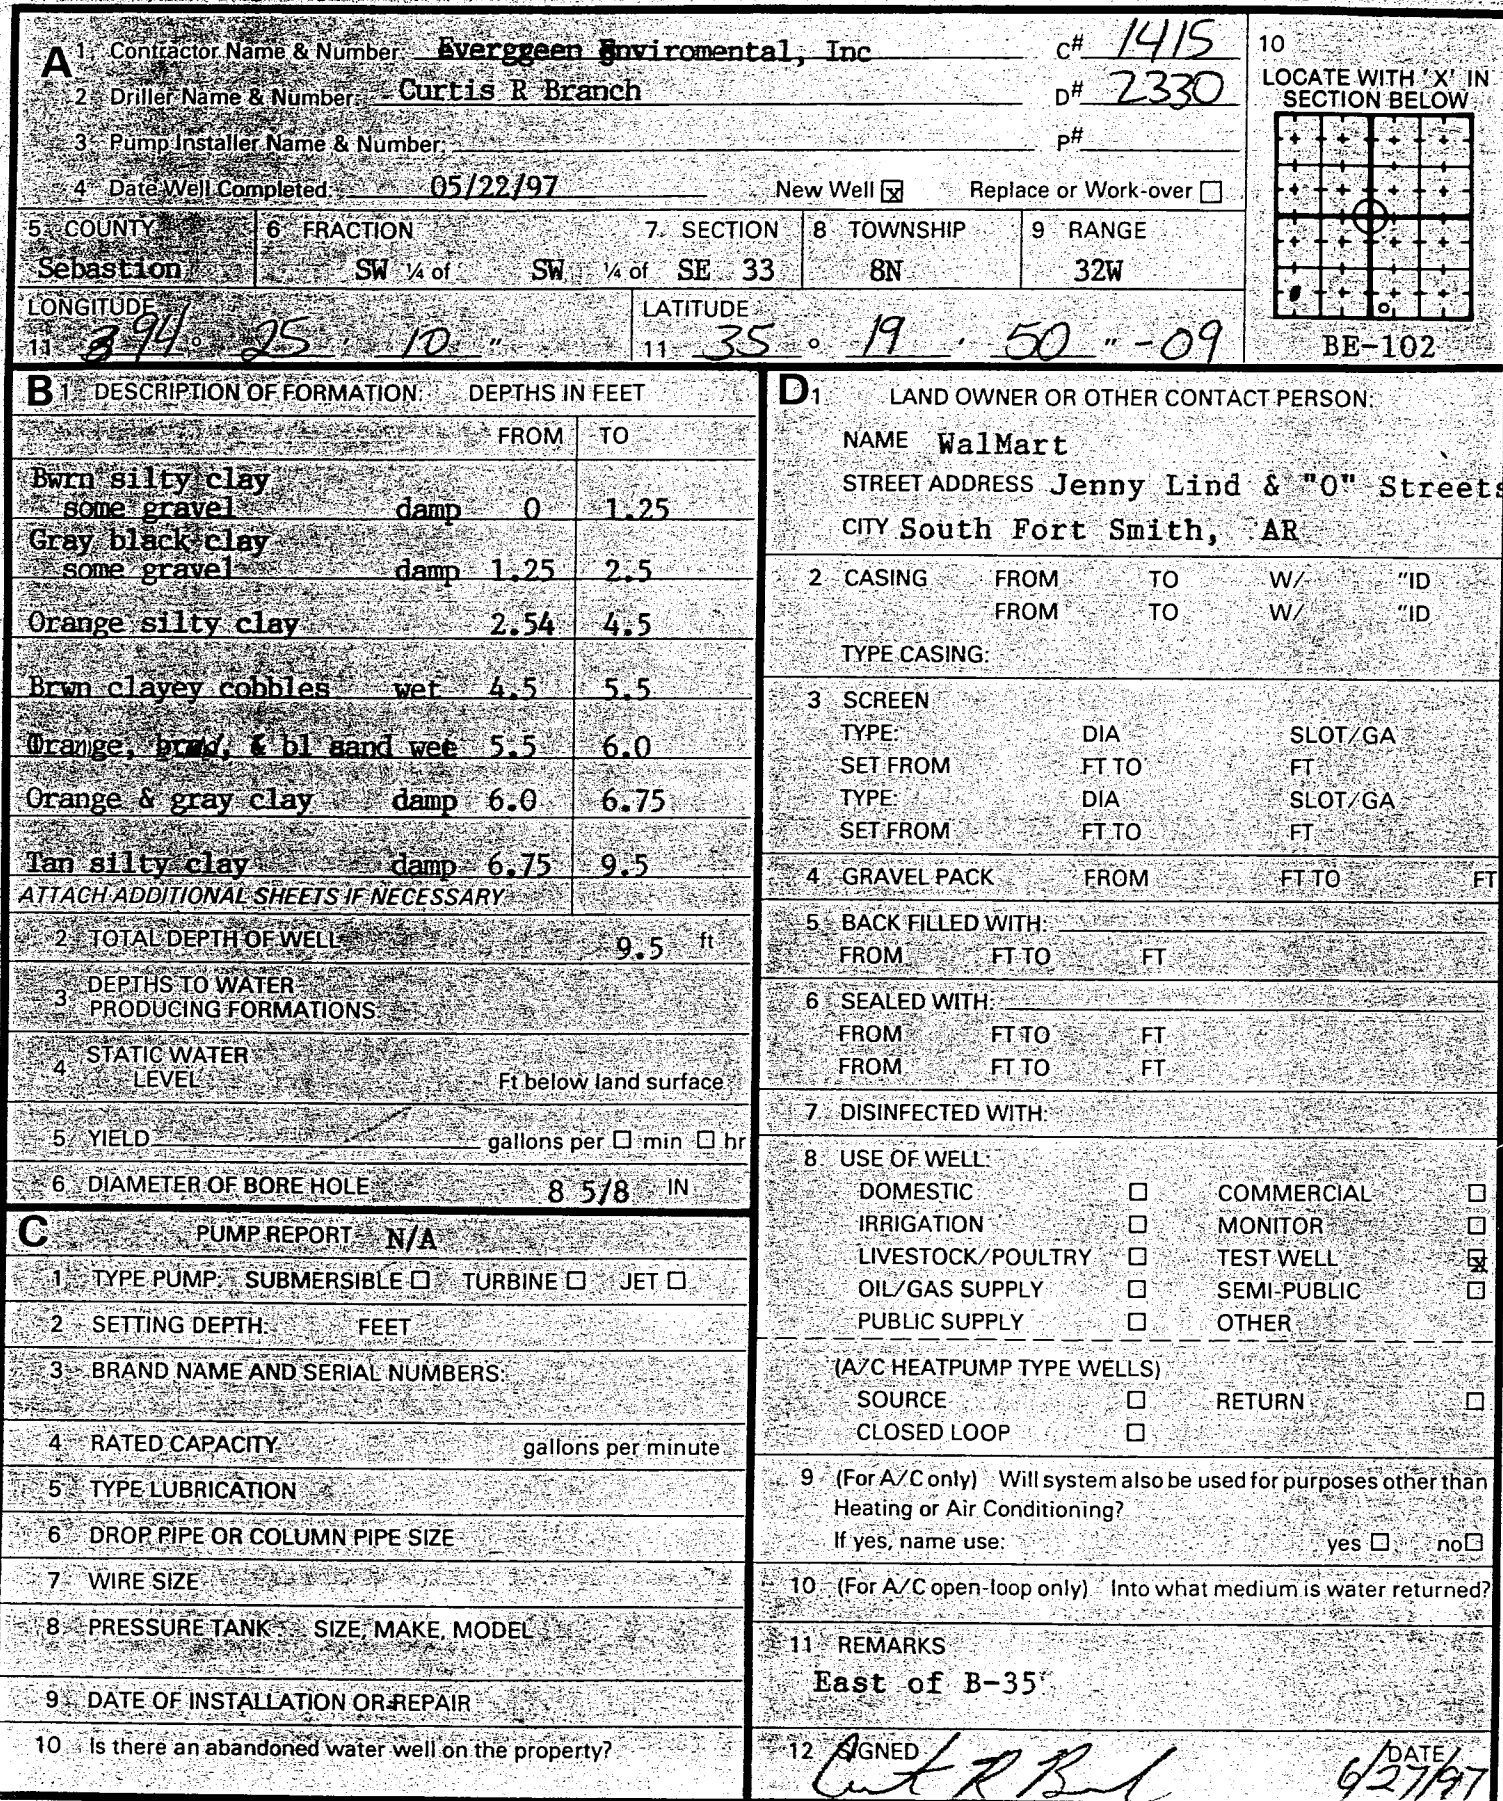 A 1 Contractor Name & Number: Everggeen Enviromental, Inc C# 1415
2 Driller Name & Number: Curtis R Branch D# 2330
3 Pump Installer Name & Number: P#
4 Date Well Completed 05/22/97 New Well ☒ Replace or Work-over ☐
10
LOCATE WITH 'X' IN
SECTION BELOW
BE-102
5 COUNTY 6 FRACTION 7. SECTION 8 TOWNSHIP 9 RANGE
Sebastion SW ¼ of SW ¼ of SE 33 8N 32W
LONGITUDE LATITUDE
11 94 ° 25 ' 10 " 11 35 ° 19 ' 50 " -09
B 1 DESCRIPTION OF FORMATION: DEPTHS IN FEET
FROM TO
Bwrn silty clay
some gravel damp 0 1.25
Gray black clay
some gravel damp 1.25 2.5
Orange silty clay 2.54 4.5
Brwn clayey cobbles wet 4.5 5.5
Orange, & bl sand wet 5.5 6.0
Orange & gray clay damp 6.0 6.75
Tan silty clay damp 6.75 9.5
ATTACH ADDITIONAL SHEETS IF NECESSARY
2 TOTAL DEPTH OF WELL 9.5 ft
3 DEPTHS TO WATER
PRODUCING FORMATIONS:
4 STATIC WATER
LEVEL Ft below land surface
5 YIELD gallons per ☐ min ☐ hr
6 DIAMETER OF BORE HOLE 8 5/8 IN
C PUMP REPORT N/A
1 TYPE PUMP: SUBMERSIBLE ☐ TURBINE ☐ JET ☐
2 SETTING DEPTH: FEET
3 BRAND NAME AND SERIAL NUMBERS:
4 RATED CAPACITY gallons per minute
5 TYPE LUBRICATION
6 DROP PIPE OR COLUMN PIPE SIZE
7 WIRE SIZE
8 PRESSURE TANK SIZE, MAKE, MODEL
9 DATE OF INSTALLATION OR REPAIR
10 Is there an abandoned water well on the property?
D 1 LAND OWNER OR OTHER CONTACT PERSON:
NAME WalMart
STREET ADDRESS Jenny Lind & "O" Streets
CITY South Fort Smith, AR
2 CASING FROM TO W/ "ID
FROM TO W/ "ID
TYPE CASING:
3 SCREEN
TYPE: DIA SLOT/GA
SET FROM FT TO FT
TYPE: DIA SLOT/GA
SET FROM FT TO FT
4 GRAVEL PACK FROM FT TO FT
5 BACK FILLED WITH:
FROM FT TO FT
6 SEALED WITH:
FROM FT TO FT
FROM FT TO FT
7 DISINFECTED WITH:
8 USE OF WELL:
DOMESTIC ☐ COMMERCIAL ☐
IRRIGATION ☐ MONITOR ☐
LIVESTOCK/POULTRY ☐ TEST WELL ☒
OIL/GAS SUPPLY ☐ SEMI-PUBLIC ☐
PUBLIC SUPPLY ☐ OTHER
(A/C HEATPUMP TYPE WELLS)
SOURCE ☐ RETURN ☐
CLOSED LOOP ☐
9 (For A/C only) Will system also be used for purposes other than
Heating or Air Conditioning?
If yes, name use: yes ☐ no ☐
10 (For A/C open-loop only) Into what medium is water returned?
11 REMARKS
East of B-35
12 SIGNED Curt R Branch DATE 6/27/97